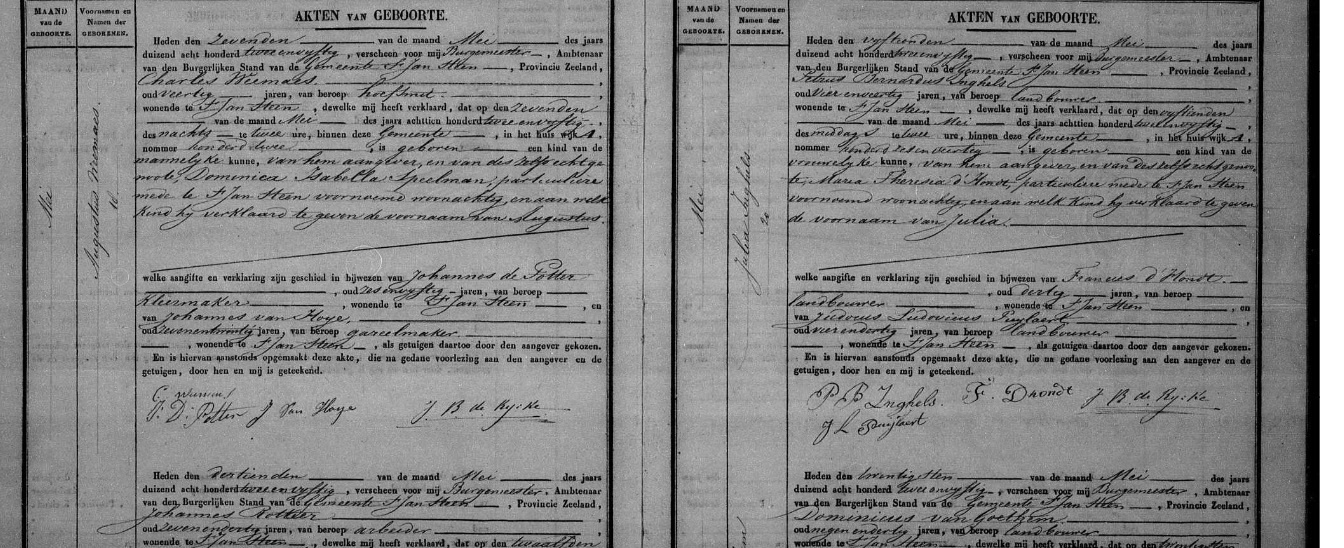 MAAND
van de
GEBOORTE.
Voornamen en
Namen der
GEBORENEN.
AKTEN VAN GEBOORTE.
Mei
Augustus Wiemaes.
16
Heden den zevenden van de maand Mei des jaars
duizend acht honderd twee en vyftig, verscheen voor mij Burgemeester, Ambtenaar
van den Burgerlijken Stand van de Gemeente St Jan Steen, Provincie Zeeland,
Charles Wiemaes
oud veertig jaren, van beroep
wonende te St Jan Steen, dewelke mij heeft verklaard, dat op den zevenden
van de maand Mei des jaars achttien honderd twee en vyftig,
des nachts te twee ure, binnen deze Gemeente, in het huis wijk A,
nommer honderd twee, is geboren een kind van de
mannelyke kunne, van hem aangever, en van des zelfs echtge
noote, Dominica Isabella Speelman, particuliere
mede te St Jan Steen voornoemd woonachtig, en aan welk
kind hy verklaard te geven de voornaam van Augustus.
welke aangifte en verklaring zijn geschied in bijwezen van Johannes de Potter
, oud zes en vyftig jaren, van beroep
kleermaker, wonende te St Jan Steen, en
van Johannes van Hoye,
oud zeven en twintig jaren, van beroep gareelmaker
, wonende te St Jan Steen, als getuigen daartoe door den aangever gekozen.
En is hiervan aanstonds opgemaakt deze akte, die na gedane voorlezing aan den aangever en de
getuigen, door hen en mij is geteekend.
C Wiemaes
J. D. Potter J Van Hoye J B de Rycke
Heden den dertienden van de maand Mei des jaars
duizend acht honderd twee en vyftig, verscheen voor mij Burgemeester, Ambtenaar
van den Burgerlijken Stand van de Gemeente St Jan Steen, Provincie Zeeland,
Johannes Potter
oud zeven en dertig jaren, van beroep arbeider
wonende te St Jan Steen, dewelke mij heeft verklaard, dat op den twaalfden
MAAND
van de
GEBOORTE.
Voornamen en
Namen der
GEBORENEN.
AKTEN VAN GEBOORTE.
Mei
Julia Inghels
20
Heden den vyftienden van de maand Mei des jaars
duizend acht honderd twee en vyftig, verscheen voor mij Burgemeester, Ambtenaar
van den Burgerlijken Stand van de Gemeente St Jan Steen, Provincie Zeeland,
Petrus Bernardus Inghels
oud vier en veertig jaren, van beroep landbouwer
wonende te St Jan Steen, dewelke mij heeft verklaard, dat op den vyftienden
van de maand Mei des jaars achttien honderd twee en vyftig,
des middags te twee ure, binnen deze Gemeente, in het huis wijk A,
nommer honderd zes en veertig, is geboren een kind van de
vrouwelyke kunne, van hem aangever, en van des zelfs echtgenoo-
te, Maria Theresia d'Hondt, particuliere mede te St Jan Steen
voornoemd woonachtig, en aan welk kind hy verklaard te geven
de voornaam van Julia.
welke aangifte en verklaring zijn geschied in bijwezen van Francies d'Hondt.
, oud dertig jaren, van beroep
landbouwer, wonende te St Jan Steen, en
van Judocus Ludovicus Puylaert,
oud vier en dertig jaren, van beroep landbouwer
, wonende te St Jan Steen, als getuigen daartoe door den aangever gekozen.
En is hiervan aanstonds opgemaakt deze akte, die na gedane voorlezing aan den aangever en de
getuigen, door hen en mij is geteekend.
P B Inghels. F. Dhondt J B de Rycke
J L Puylaert
Heden den twintigsten van de maand Mei des jaars
duizend acht honderd twee en vyftig, verscheen voor mij Burgemeester, Ambtenaar
van den Burgerlijken Stand van de Gemeente St Jan Steen, Provincie Zeeland,
Dominicus van Goethem
oud negen en dertig jaren, van beroep landbouwer
wonende te St Jan Steen, dewelke mij heeft verklaard, dat op den twintigsten